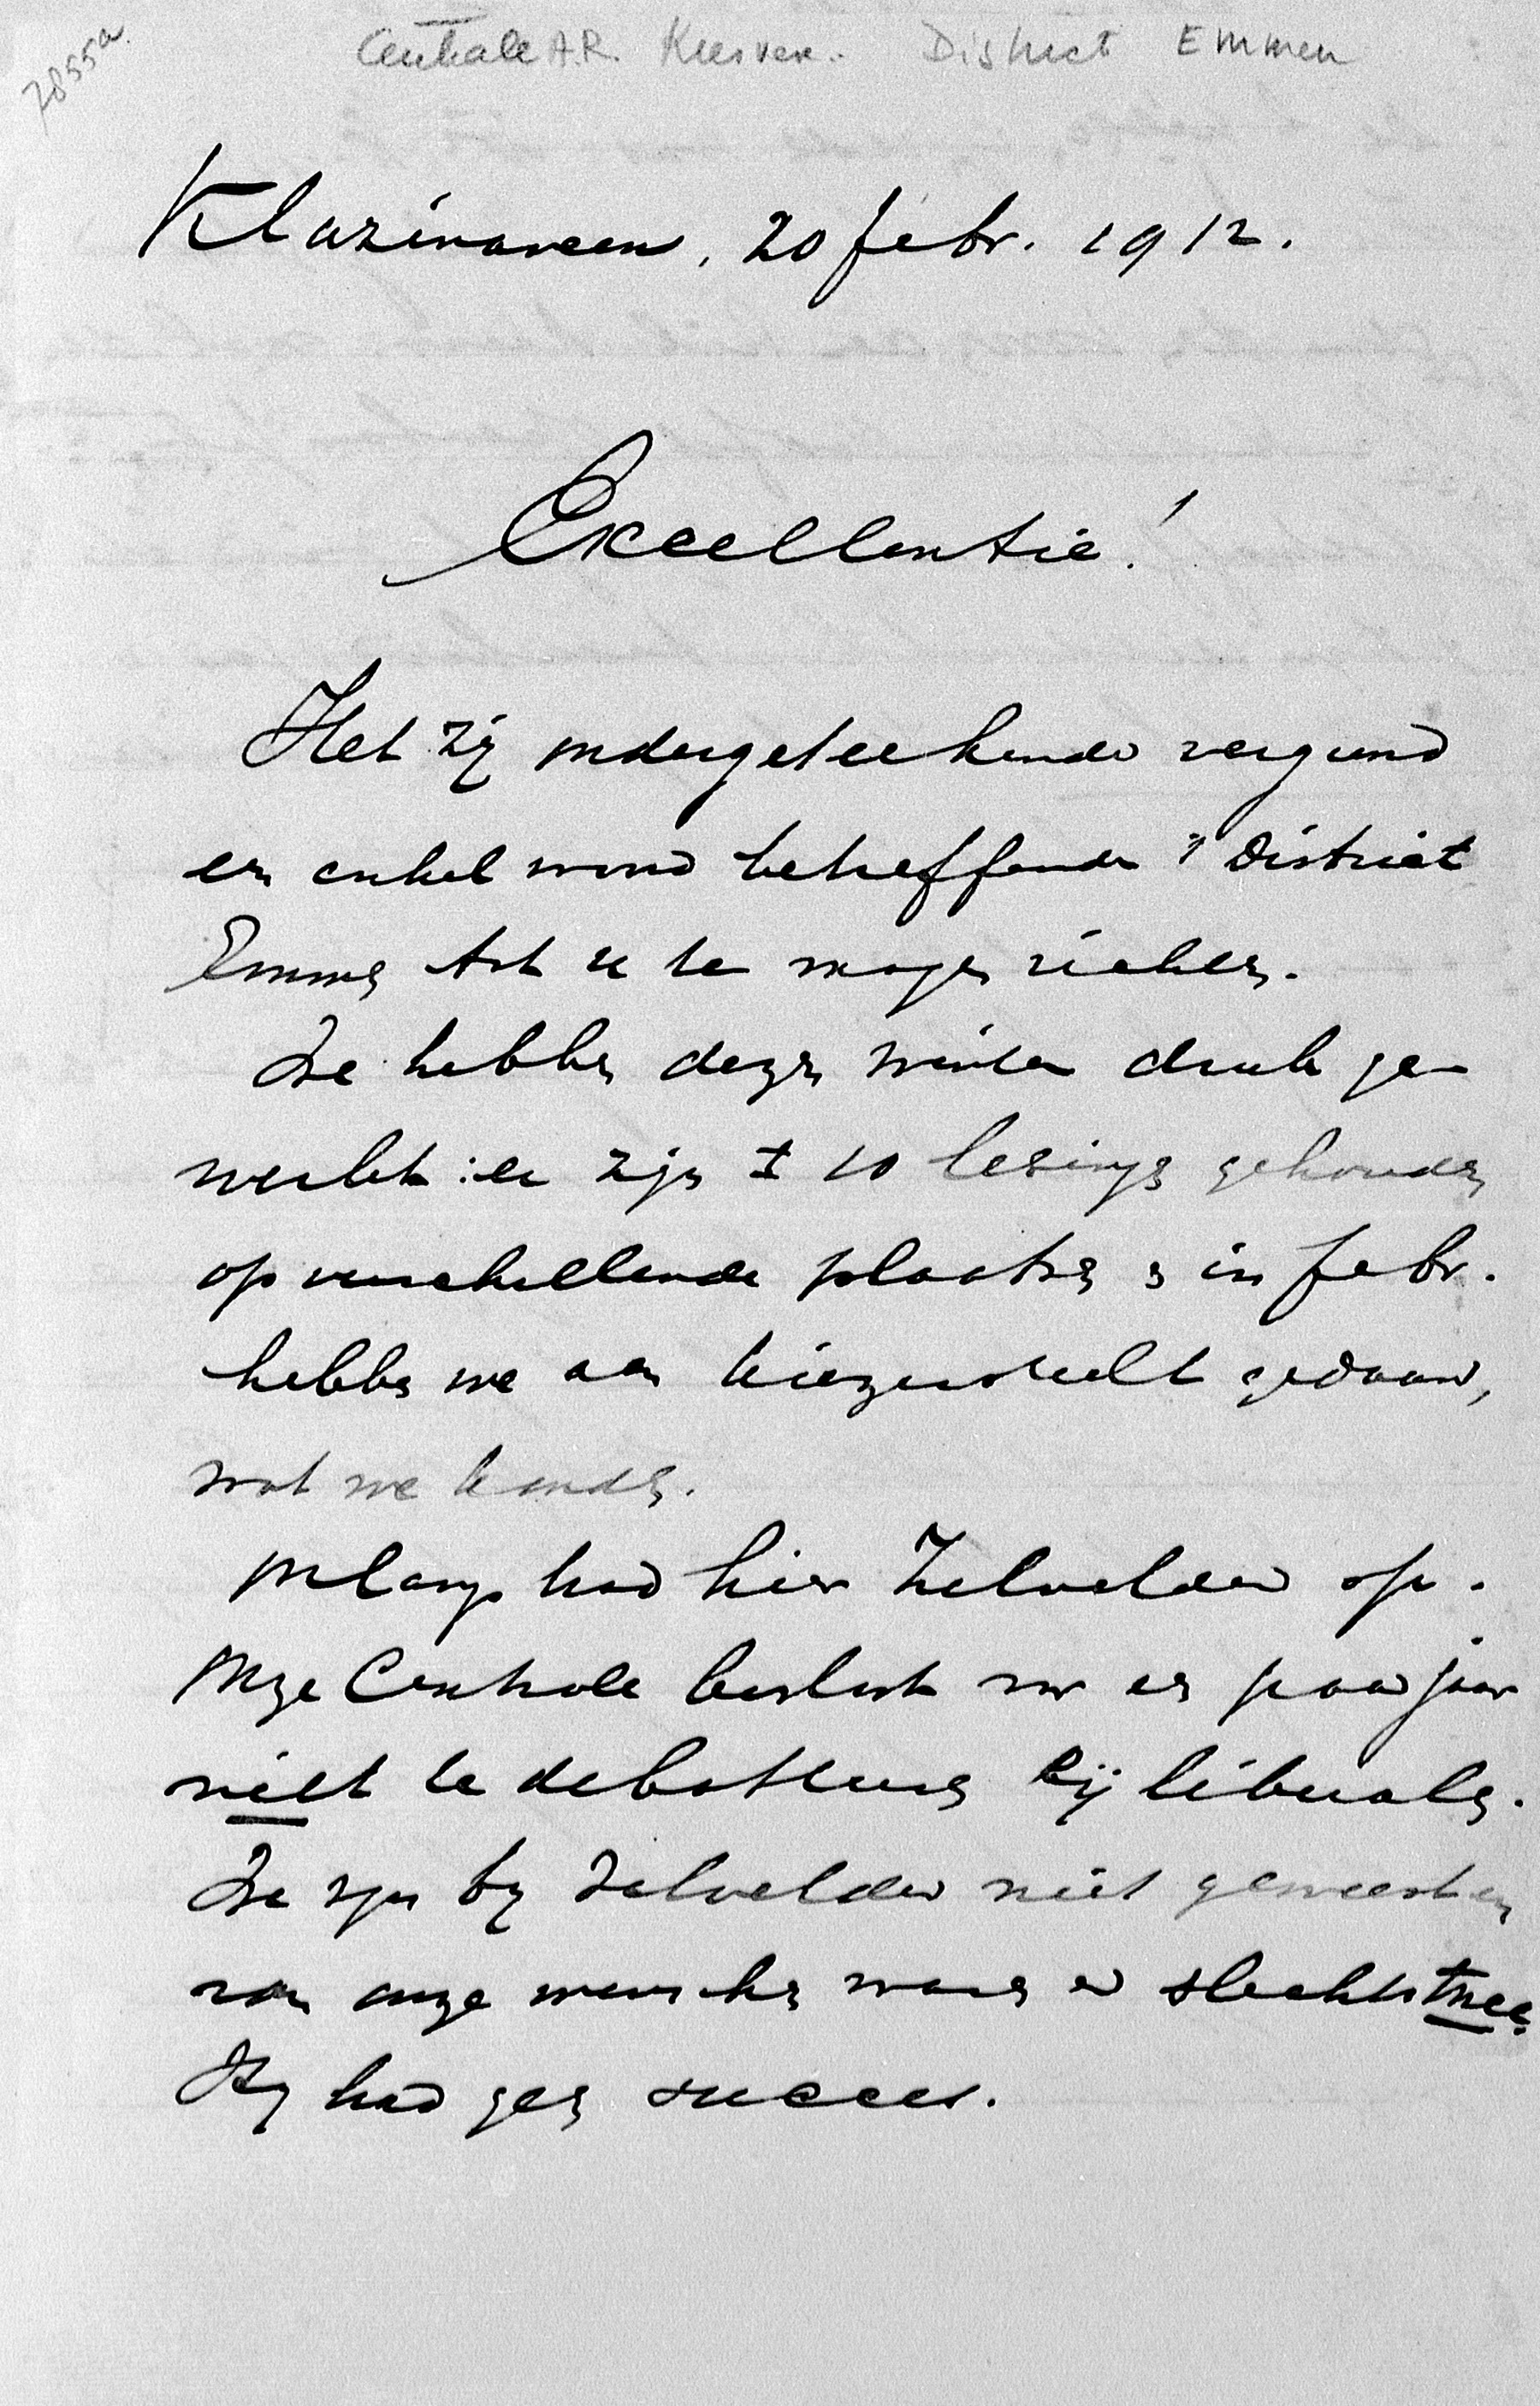 7855a
Centrale A.R. Kiesver. District Emmen
Klazinaveen, 20 febr. 1912.
Excellentie!
Het zij ondergeteekende vergund
een enkel woord betreffende 't District
Emmen tot U te mogen richten.
We hebben dezen winter druk ge-
werkt: er zijn ± 10 lezingen gehouden
op verschillende plaatsen en in febr.
hebben we aan kiezersrecht gedaan,
wat we konden.
Onlangs had hier Zelvelder op.
Onze Centrale besloot voor een paar jaar
niet te debatteeren bij liberalen.
We zijn bij Zelvelder niet geweest en
van onze menschen waren er slechts twee.
Hij had geen succes.